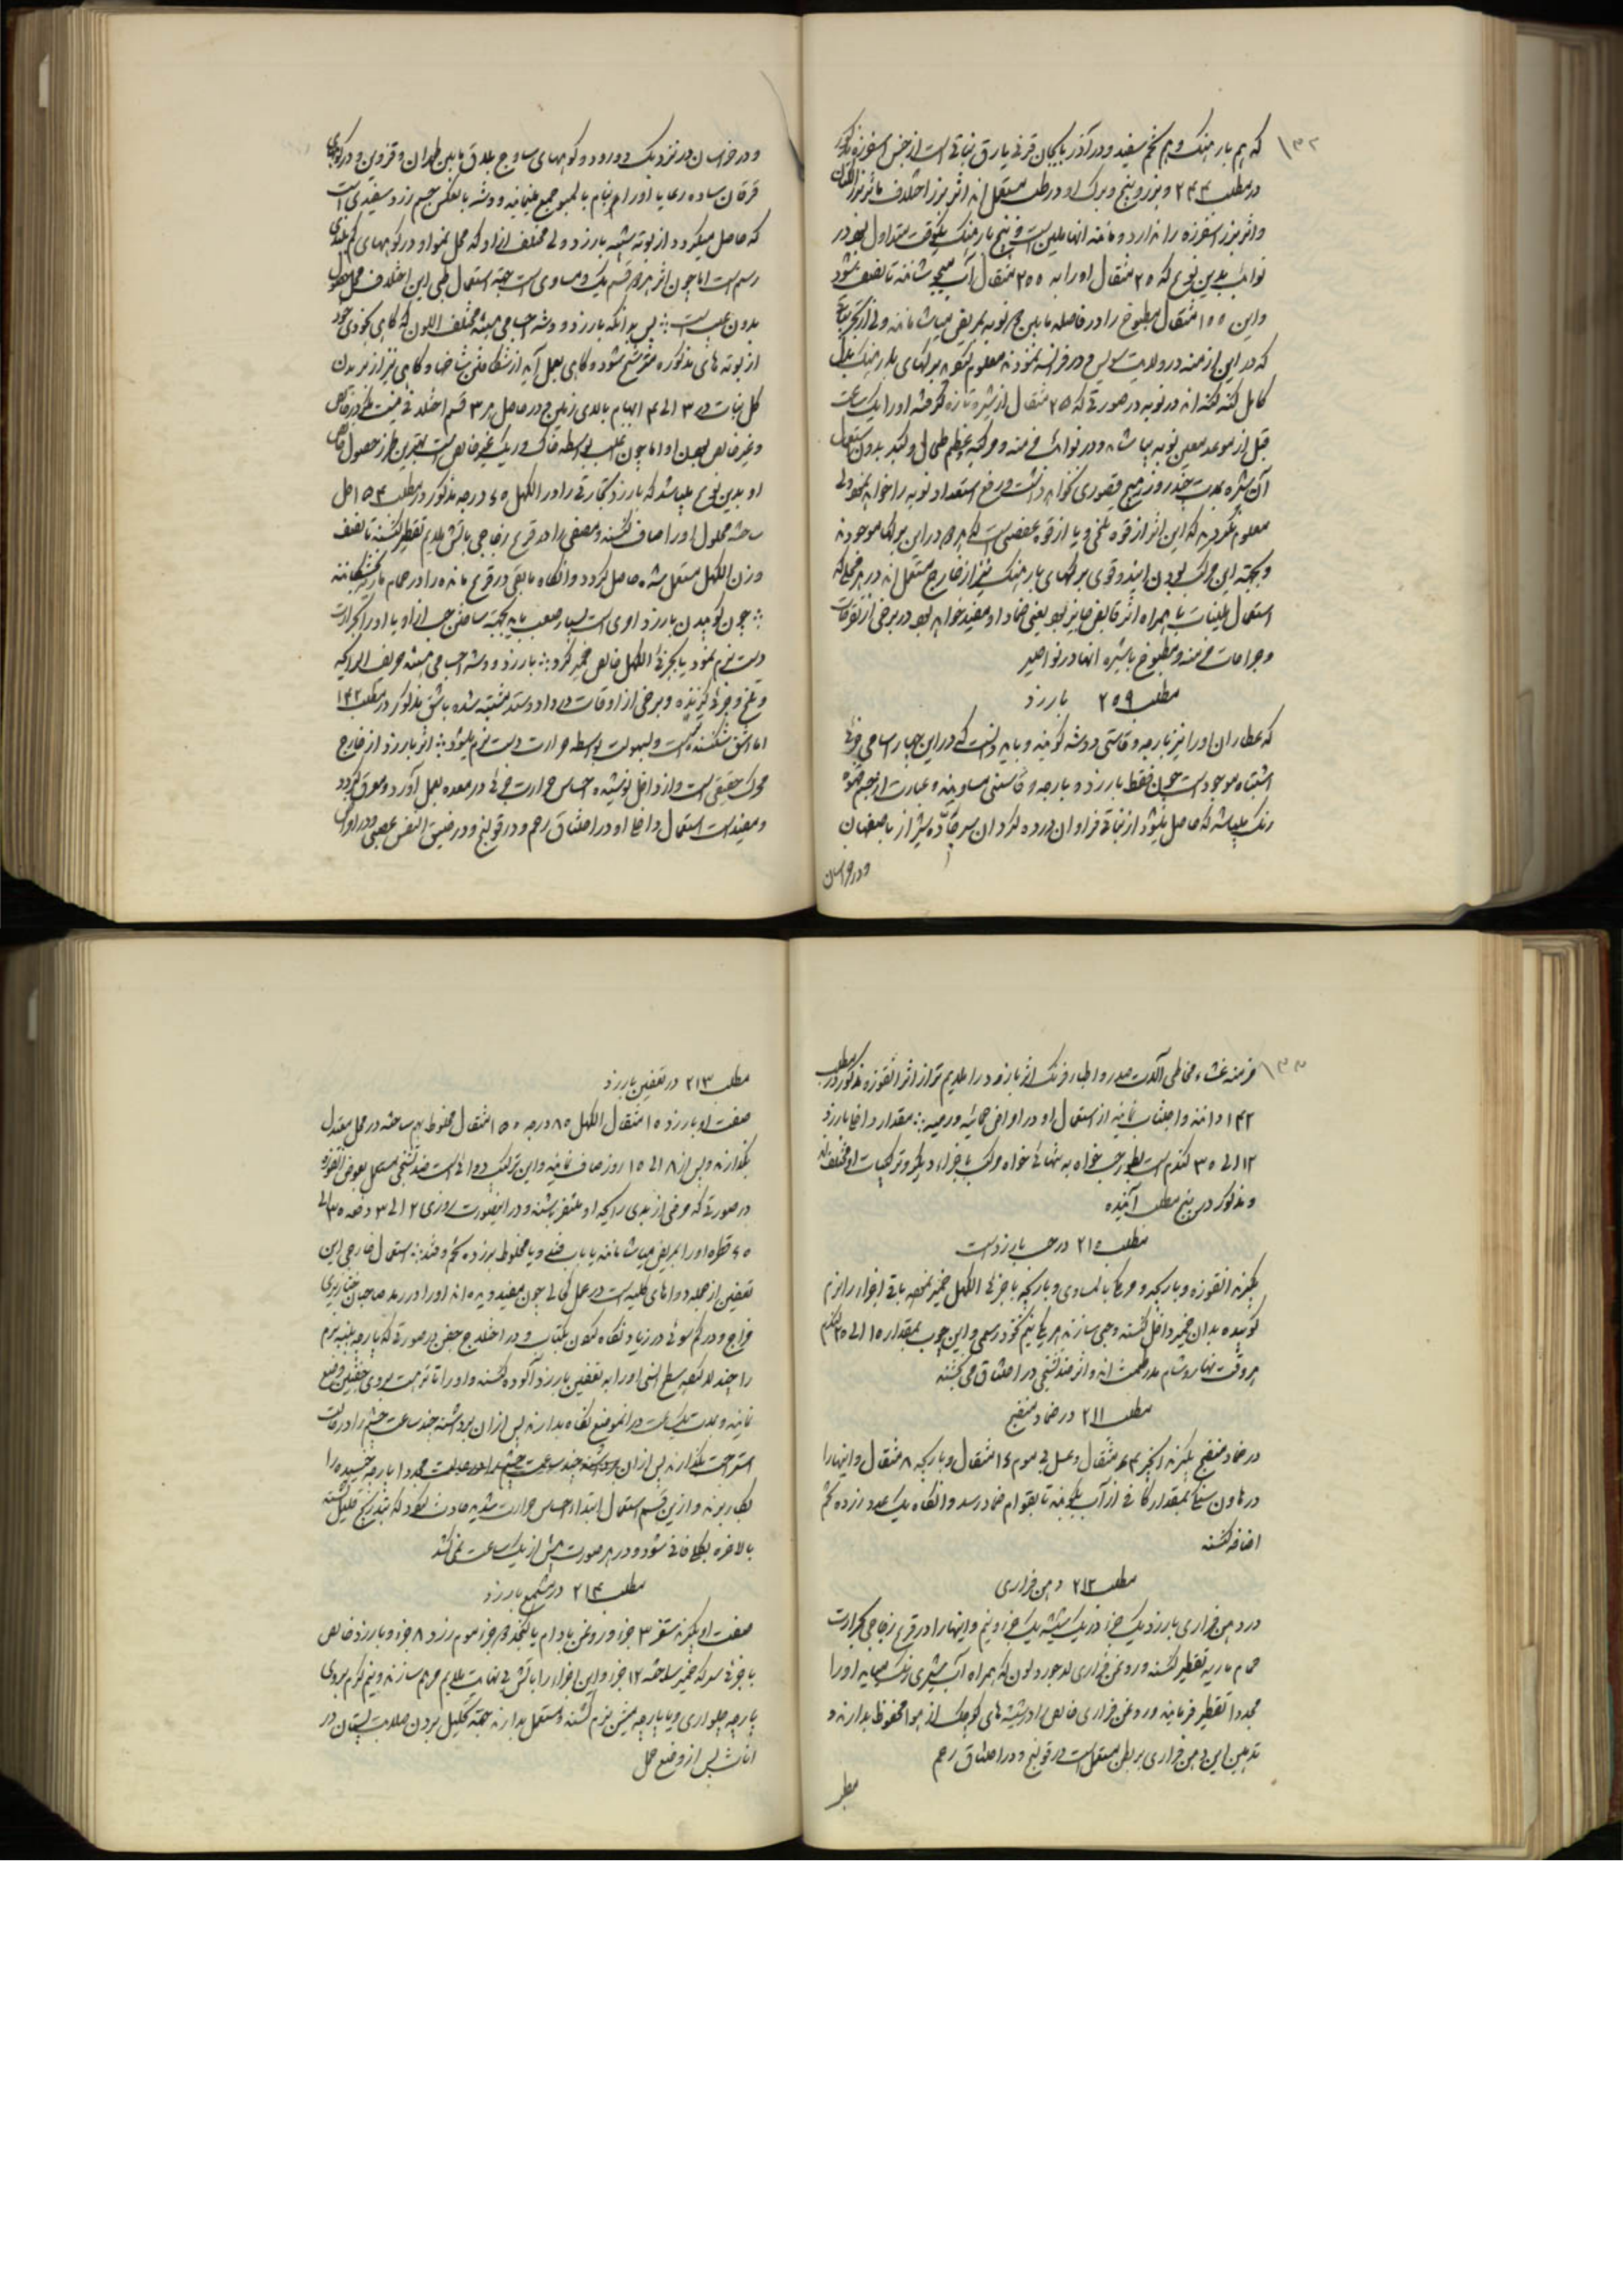 ۱۳۲
که هم بارهنگ و هم تخم سفید و در آذربایجان قرنی یارق نباتی است از جنس اسفرزه مذکور
در مطلب ۲۴۴ و بزر و بیخ و برک او در طب مستعمل اند اثر بزر اختلاف با اثر بزر الکتان
و اثر بزر اسفرزه را ندارد و مانند آنها ملین است و بیخ بارهنگ یکوقت متداول بود در
نوائب بدین نوع که ۲۵ مثقال او را به ۲۵۵ مثقال آب میجوشانند تا نصف بشود
و این ۱۵۵ مثقال مطبوخ را در فاصله مابین دو نوبه بمریض میاشامانند ولی از تجربیاتی
که در این ازمنه در ولایت سویس و در فرانسه نمودند معلوم بکه برکهای بارهنگ بدل
کامل کنه کنه اند در نوبه در صورتی که ۲۵ مثقال از شیره تازه کرفته او را یک ساعت
قبل از موعد معین نوبه بیاشامند و در نوائب مزمنه و مرکبه بعظم طحال و کبد بدون استعمال
آن شیره بمدت چند روز هیچ قصوری نخواهد داشت و رفع استعداد نوبه را خواهد نمود ولی
معلوم نکردید که این اثر از قوه تلخی و یا از قوه عفصی است که هر دو در این برکها موجودند
و بجهته این مرکب بودن ایندو قوی برکهای بارهنگ نیز از خارج مستعمل اند در هر محلی که
استعمال ملینات با همراه اثر قابض جایز بود یعنی ضماد او مفید خواهد بود در برخی از تورمات
و جراحات مزمنه و مطبوخ با شیره آنها در نواصیر
مطلب ۲۵۹ بارزد
که عطاران او را نیز بارجه و قاستی و وشه کویند و باید دانست که در این چهار اسامی جزئی
اشتباه موجود است چون فقط بارزد و بارجه و قاستی مساویند و عبارت از جسم قهوه
رنک میباشد که حاصل میشود از نباتی فراوان در رود لردان سر جاده شیراز باصفهان
و در خراسان
و در خراسان در نزدیک دورود و کوههای ساوج بلاق مابین طهران و قزوین و در کوههای
که حاصل میکردد از بوته شبیه بارزد ولی مختلف از او که محل نمو او در کوههای کم بلندی
رسم است اما چون اثر هر دو قسم یک و مساوی است جهته استعمال طبی این اختلاف محل حصول
بدون عیب است ∴ پس بدانکه بارزد و وشه اجسامی میشند مختلف اللون که کاهی بخودی خود
از بوته های مذکوره مترشح شود و کاهی بعمل آید از شکافتن شاخها و کاهی نیز از بریدن
کل نبات در ۳ الی ۴ ابهام بالای زمین و در حاصل هر ۳ قسم اختلافی نیست مکر در خالص
و غیر خالص بودن او اما چون اغلب بواسطه خاک و ریک غیر خالص است بهترین طرز حصول خالص
او بدین نوع میباشد که بارزد تجارتی را در الکهل ۶۵ درجه مذکور در مطلب ۱۵۴ حل
ساخته محلول او را صاف کنند و مصفی را در قرع زجاجی بآتش ملایم تقطیر کنند تا نصف
وزن الکهل مستعمل شده حاصل کردد و آنکاه مابقی در قرع مانده را در حمام ماریه بخشکانند
∴ چون کوبیدن بارزد امری است بسیار صعب باید بجهته ساختن حب از او یا او را بحرارت
دست نرم نمود یا بجزئی الکهل خالص خمیر کرد ∴ بارزد و وشه اجسامی میشند حریف الرایحه
و تلخ و جزئی کزنده و برخی از اوقات در داد و ستد مشتبه شده باشق مذکور در مطلب ۱۴۲
اما اشق شکننده است و بسهولت بواسطه حرارت دست نرم میشود ∴ اثر بارزد از خارج
محرک حقیقی است و از داخل نوشیده احساس حرارت جزئی در معده بعمل آورد و معرق کردد
و مفید است استعمال داخلی او در اختناق رحم و در قولنج و در ضیق النفس عصبی و در اورام
۱۳۳
مزمنه غشاء مخاطی آلات صدر و اطبا فرنک اثر بارزد را ملایم تر از اثر انقوزه مذکور در مطلب
۱۴۲ دانند و اجتناب نمایند از استعمال او در امراض حمائیه و رمیه ∴ مقدار داخلی بارزد
۱۲ الی ۳۵ کندم است بطور حب خواه به تنهائی خواه مرکب باجزاء دیکر و ترکیبات او مختلف اند
و مذکور در پنج مطلب آینده
مطلب ۲۱۵ در حب بارزد است
بکیرند انقوزه و بارزد و مرمکی بالمساوی و بارزد را با جزئی الکهل خمیر نموده باقی اجزاء را نرم
کوبیده بدان خمیر داخل کنند و حبی سازند هر یک نیم نخود رسمی و این حبوب بمقدار ۱۵ الی ۲۵ کندم
هر وقت نهار و شام مدر طمث اند و اثر ضد تشنجی در اختناق می بخشند
مطلب ۲۱۱ در ضماد منضج
در ضماد منضج بکیرند انجیر ۶۴ مثقال و عسل بی موم ۱۶ مثقال و بارزد ۸ مثقال و اینها را
در هاون سنکی بمقدار کافی از آب بکوبند تا بقوام ضماد رسد و آنکاه یک عدد زرده تخم
اضافه کنند
مطلب ۲۱۲ دهن فراری
در دهن فراری بارزد یک جزء در یک شیشه یک جزء و نیم و اینها را در قرع زجاجی بحرارت
حمام ماریه تقطیر کنند و روغن فراری لاجورد لون که همراه آب میشری نزنک میاید او را
مجددا تقطیر فرمایند و روغن فراری خالص را در شیشه های کوچک از هوا محفوظ بدارند و
تدهین این دهن فراری بر بطن مستعمل است در قولنج و در اختناق رحم
مطلب
مطلب ۲۱۳ در تعفین بارزد
صفت او بارزد ۱۵ مثقال الکهل ۸۵ درجه ۱۵۵ مثقال مخلوط بهم ساخته در محل معتدل
بکذارند و پس از ۸ الی ۱۵ روز صاف نمایند و این ترکیب دوائی است ضد تشنجی مستعمل بعوض انقوزه
در صورتی که مرضی از بدی رایحه او متنفر باشند و در اینصورت روزی ۲ الی ۳ دفعه ۳۵ الی
۶۵ قطره او را بمریض میاشامانند یا بآب قند و یا مخلوط بزرده تخم و قند ∴ استعمال خارجی این
تعفین از جمله دواهای کلیه است در عمل کحالی چون مفید دیده اند او را در رمد صاحبان خنازیری
مزاج و در کم سوئی در زیاد نکاه کردن بکتاب و در اختلاج جفن در صورتی که پارچه پنبه نرم
را چند لا نموده سطح انسی او را به تعفین بارزد آلوده کنند و او را تا تر هست بروی جفنین وضع
نمایند و مدت یک ساعت در آنموضع نکاه بدارند پس از آن برداشته چند ساعت چشم را در حالت
استراحت بکذارند پس از آن برداشته چند ساعت چشم را در حالت مجددا پارچه خیسیده را
بکار برند و از این قسم استعمال ابتدا احساس حرارت شدید حادث کردد که بتدریج قلیل کشته
بالاخره بکلی فانی شود و در هر صورت بیش از یک ساعت نمی کشد
مطلب ۲۱۴ در مشمع بارزد
صفت او بکیرند سقز ۳ جزء و روغن بادام یا کنجد ۲ جزء موم زرد ۸ جزء و بارزد خالص
با جزئی سرکه خمیر ساخته ۱۲ جزء و این اجزاء را بآتش بی نهایت ملایم مرهم سازند و نیم کرم بروی
پارچه چلواری و یا پارچه میشن نرم کشند و مستعمل بدارند جهته تحلیل بردن صلابت پستان در
اناث پس از وضع حمل